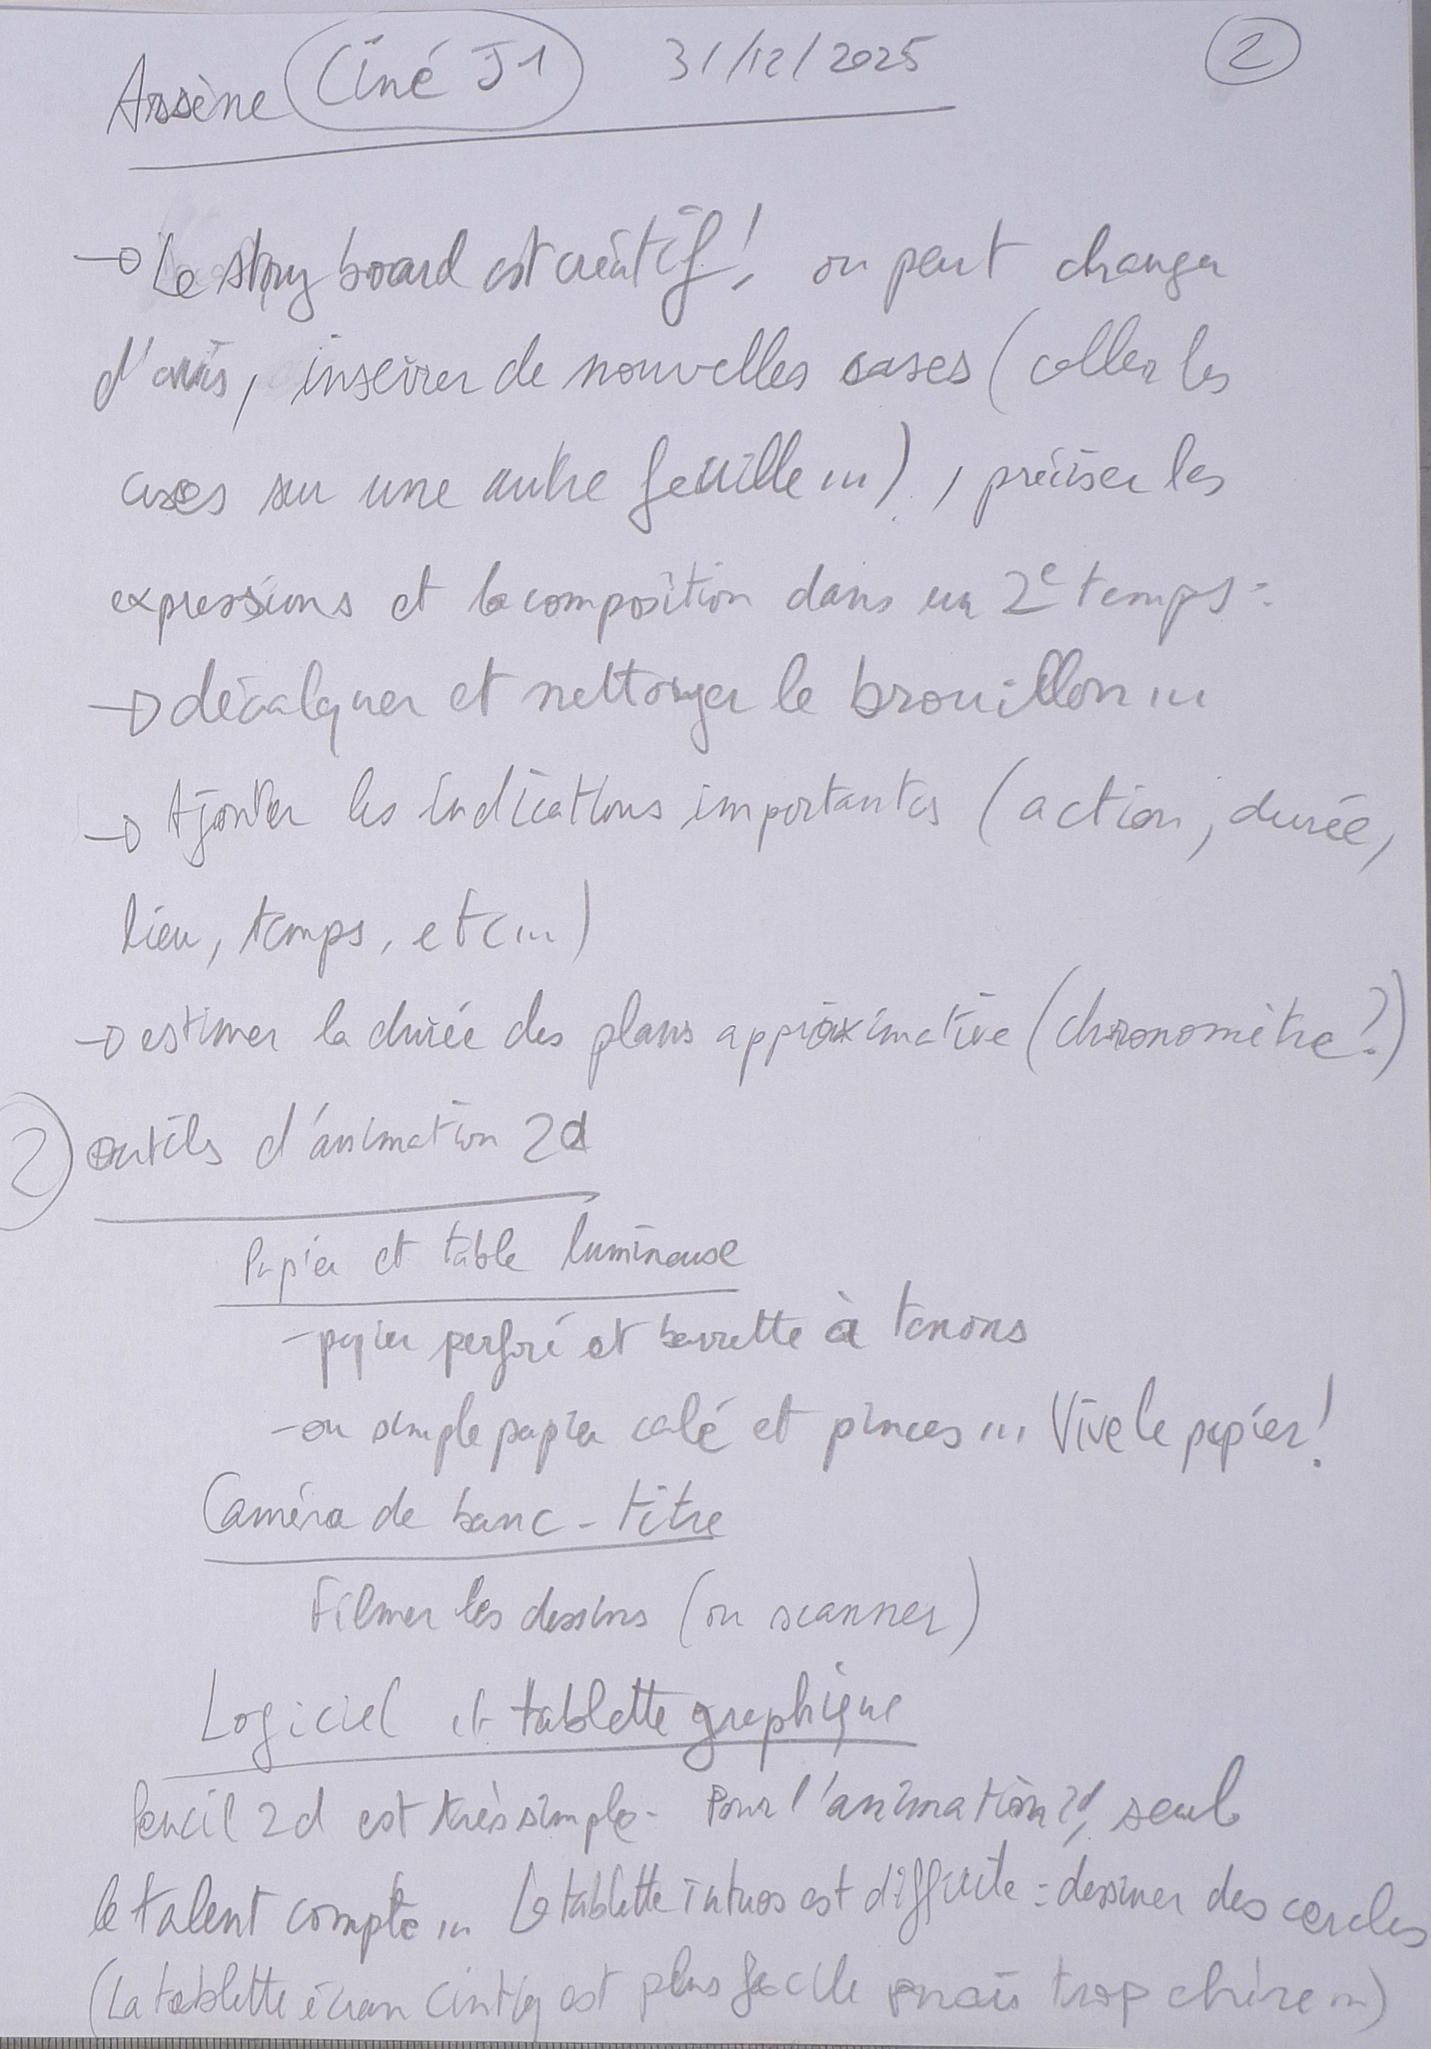 Arsène Ciné J1 31/12/2025 2
→ Le story board est créatif ! on peut changer
d'avis, insérer de nouvelles cases (coller les
cases sur une autre feuille ...), préciser les
expressions et la composition dans un 2e temps :
→ décalquer et nettoyer le brouillon ...
→ Ajouter les indications importantes (action, durée,
lieu, temps, etc ...)
→ estimer la durée des plans approximative (chronomètre ?)
2) outils d'animation 2d
Papier et table lumineuse
- papier perforé et barrette à tenons
- ou simple papier calé et pinces ... Vive le papier !
Caméra de banc-titre
Filmer les dessins (ou scanner)
Logiciel et tablette graphique
Pencil 2d est très simple. Pour l'animation 2d, seul
le talent compte ... La tablette intuos est difficile : dessiner des cercles
(La tablette écran Cintiq est plus facile mais trop chère ...)